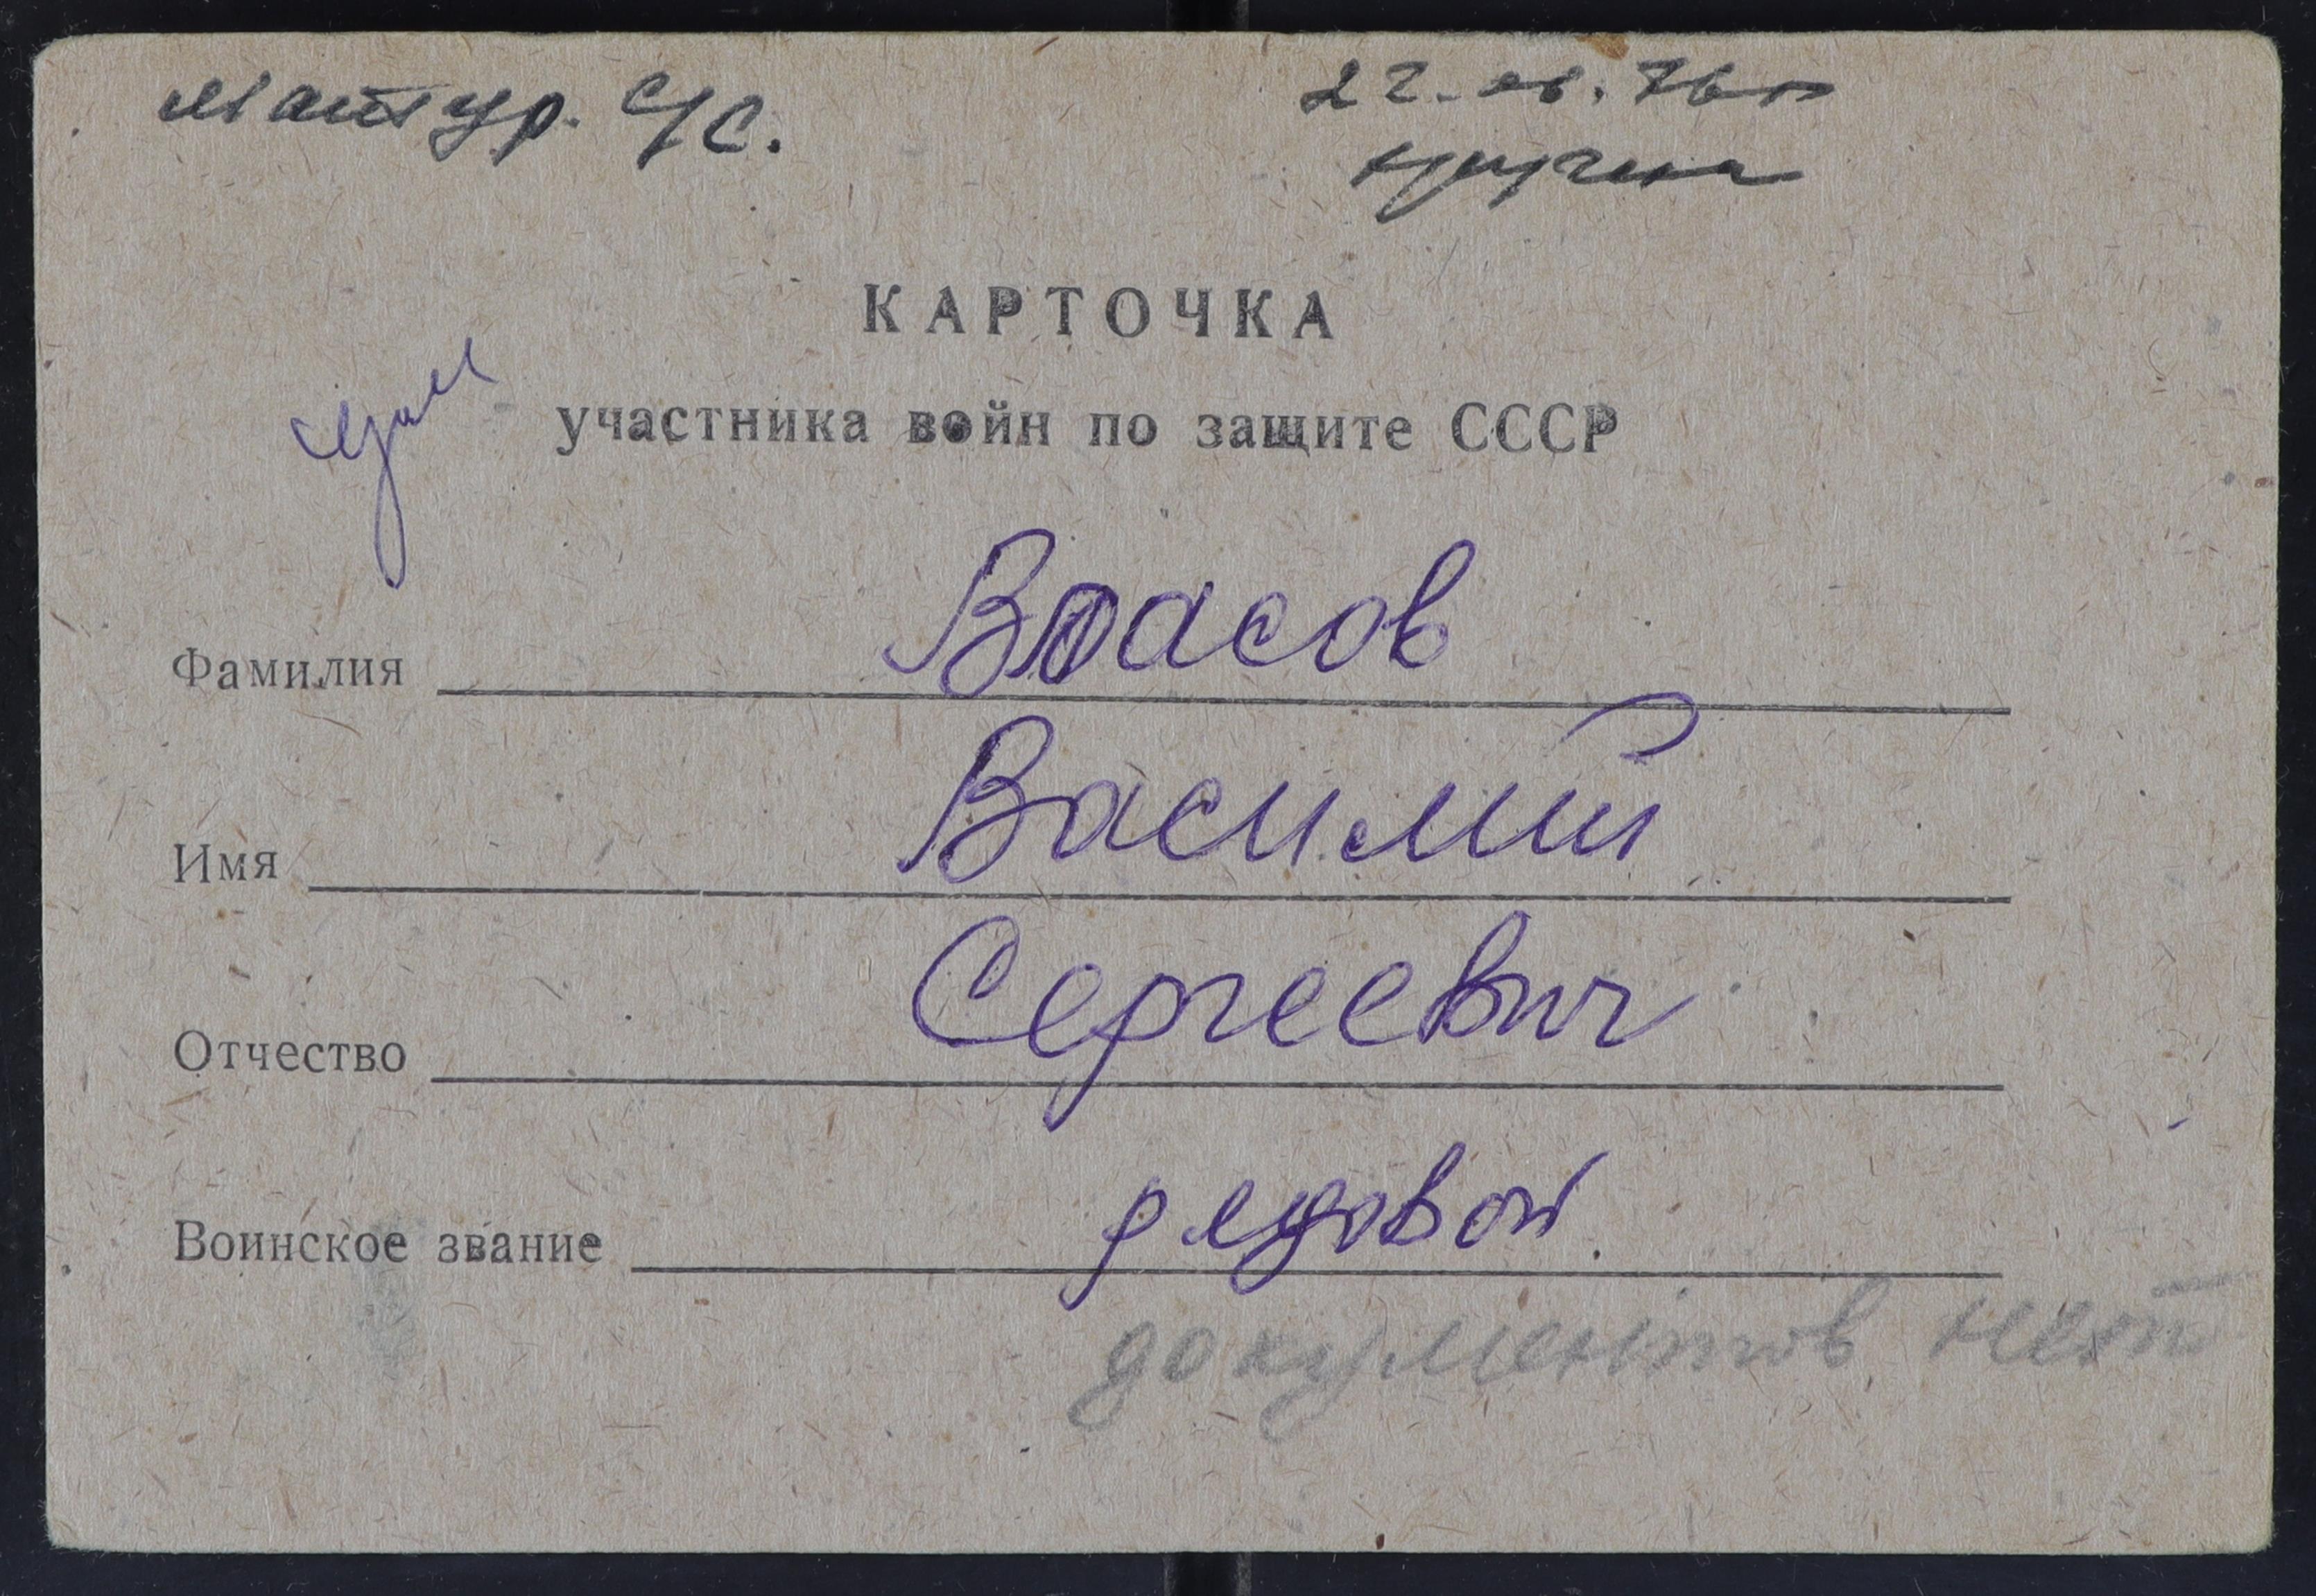 Матур. С/С.
22. 06. 76г
КАРТОЧКА
участника войн по защите СССР
Фамилия Власов
Имя Василий
Отчество Сергеевич
Воинское звание рядовой
документов нет